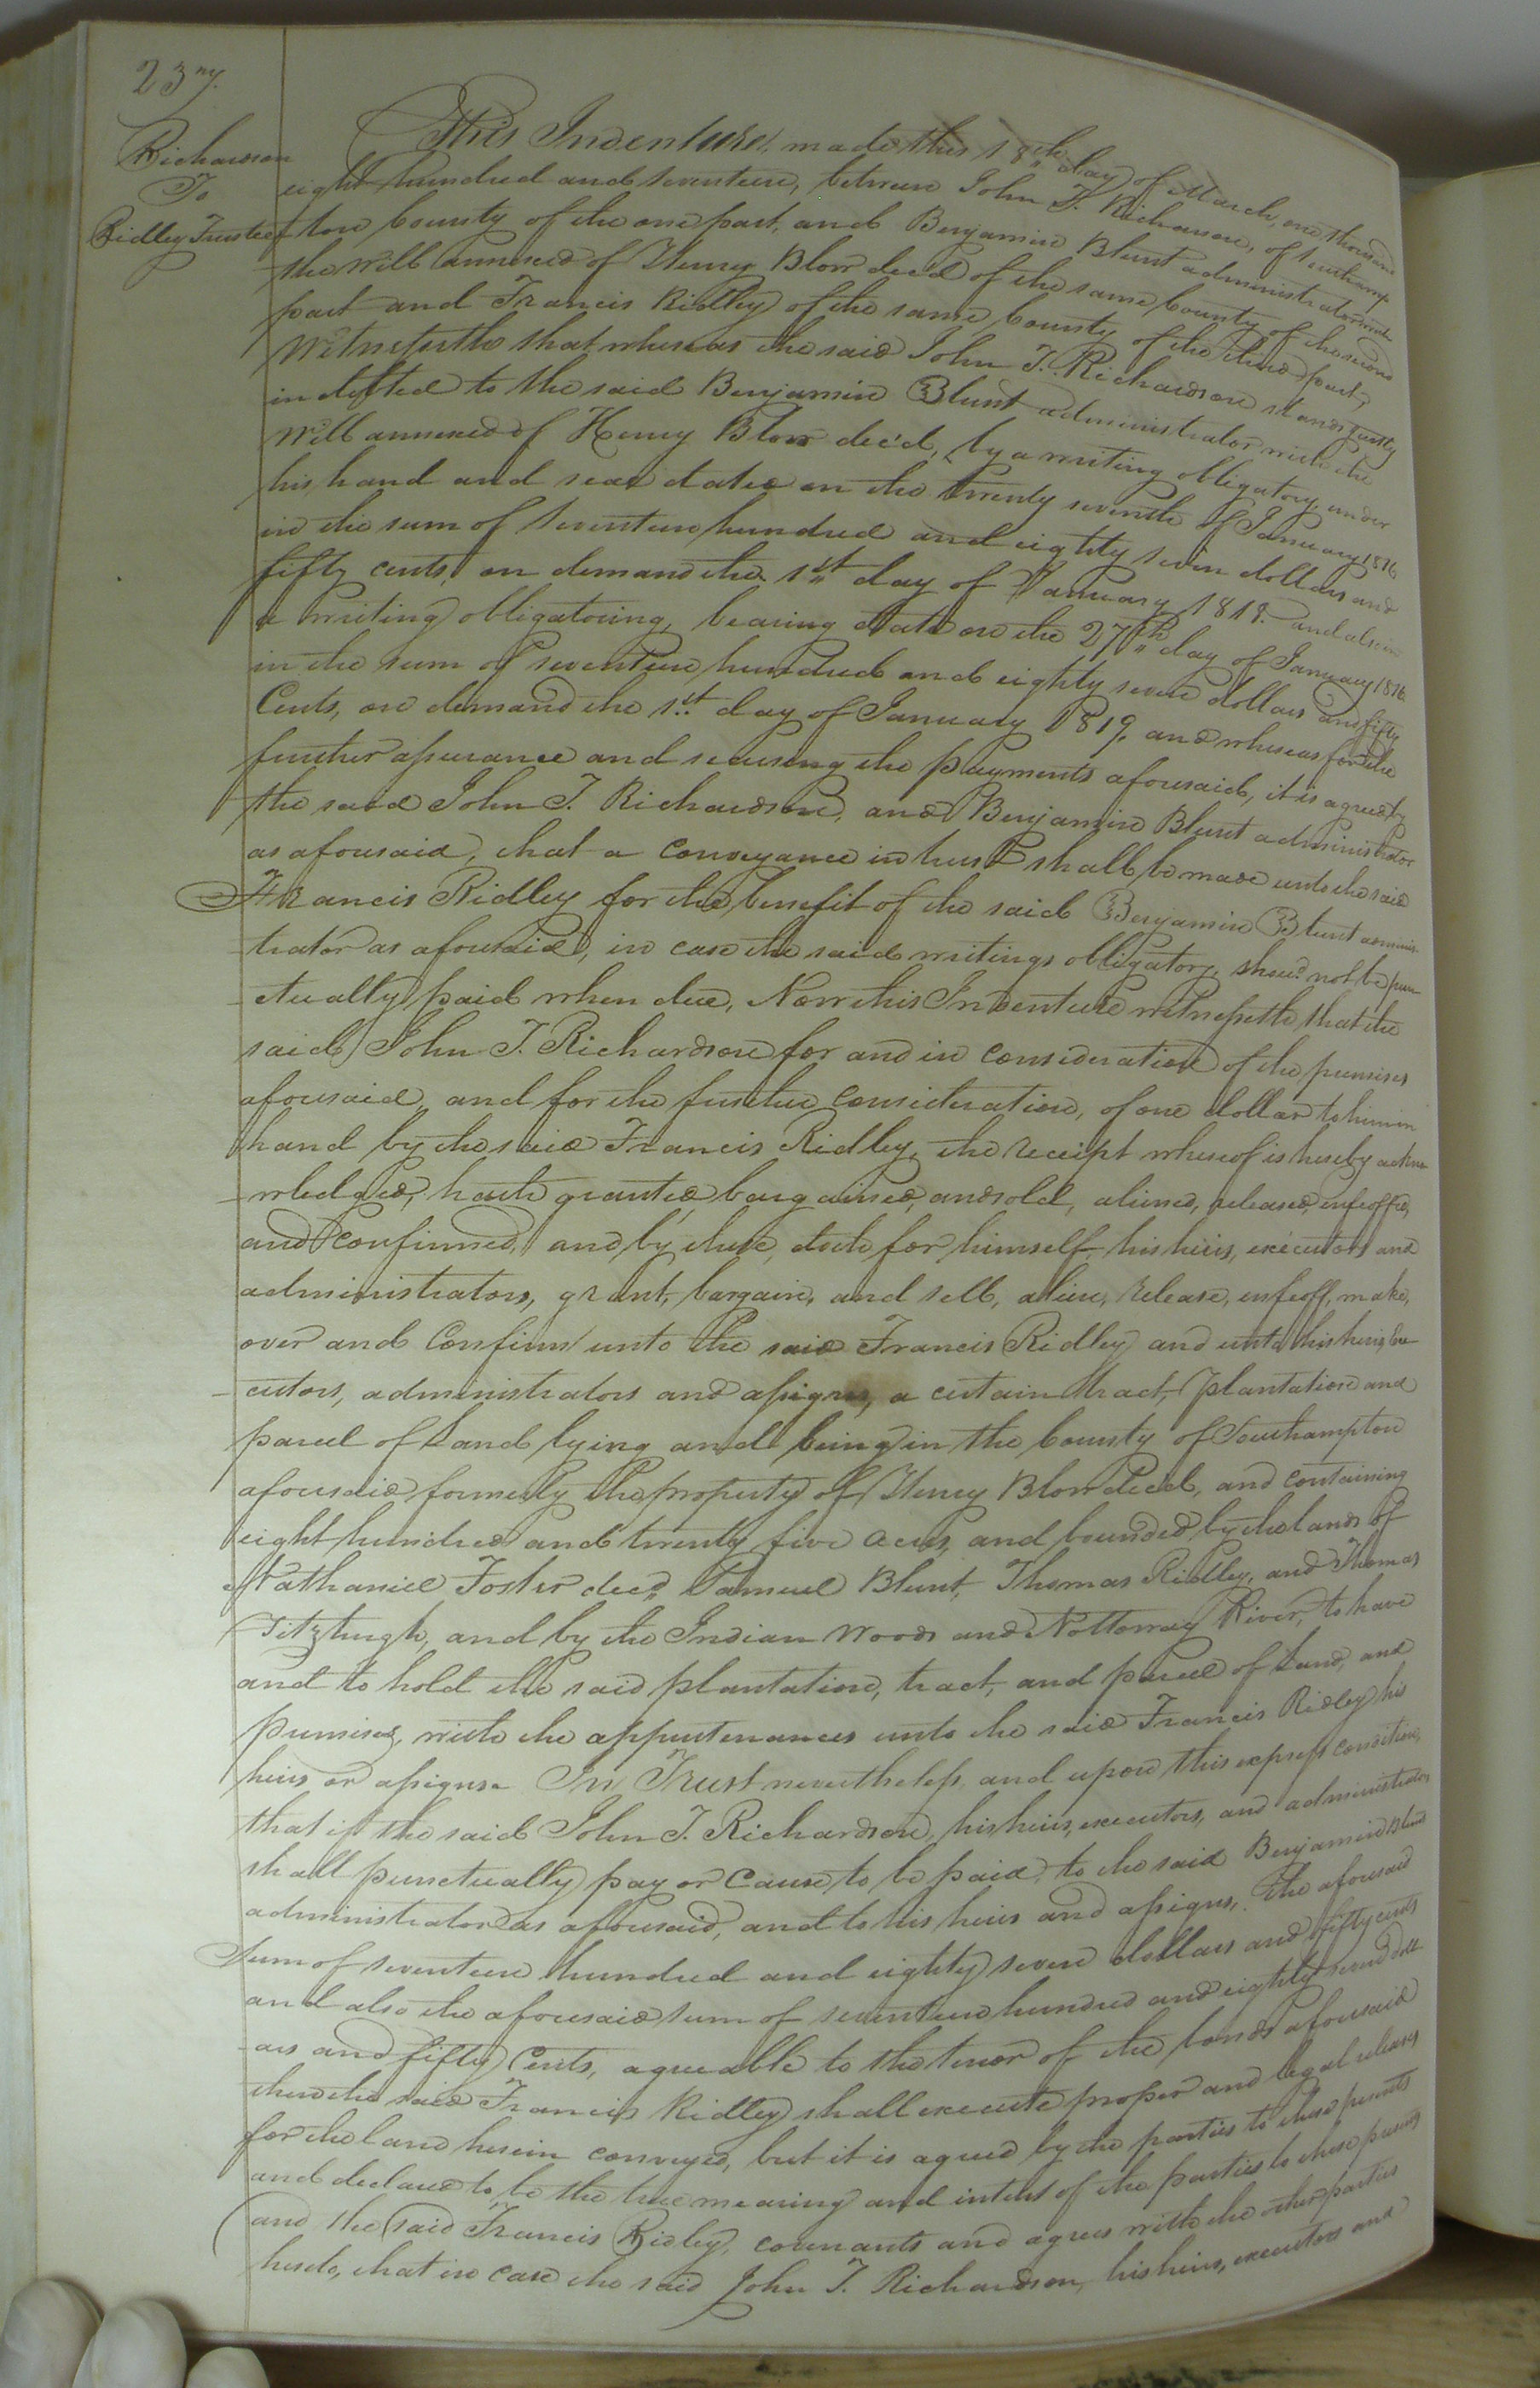 237.
Richardson
To
Ridley Trustee
This Indenture, made this 18th day of March, one thousand
eight hundred and seventeen, between John T. Richardson, of Southamp
ton County of the one part, and Benjamin Blunt administrator with
the will annexed of Henry Blow decd of the same County of the second
part and Francis Ridley of the same County of the third part,
Witnesseth that whereas the said John T. Richardson stands justly
indebted to the said Benjamin Blunt administrator with the
Will annexed of Henry Blow dec'd, by a writing obligatory under
his hand and seal dated on the twenty seventh of January 1816
in the sum of seventeen hundred and eighty seven dollars and
fifty cents, on demand the 1st day of January 1818. and also in
a writing obligatoring, bearing date on the 27th day of January 1816
in the sum of seventeen hundred and eighty seven dollars and fifty
Cents, on demand the 1st day of January 1819. and whereas for the
further assurance and securing the payments aforesaid, it is agreed by
the said John T. Richardson, and Benjamin Blunt administrator
as aforesaid, that a conveyance in trust shall be made unto the said
Francis Ridley for the benefit of the said Benjamin Blunt adminis-
trator as aforesaid, in case the said writings obligatory, shoud not be punc-
-tually paid when due, Now this Indenture witnesseth, that the
said John T. Richardson for and in consideration of the premises
aforesaid, and for the further consideration, of one dollar to him in
hand by the said Francis Ridley, the receipt whereof is hereby ackno-
-wledged, hath granted, bargained, and sold, aliened, released, enfeoffed,
and confirmed, and by these, doth for himself, his heirs, executors and
administrators, grant, bargain, and sell, alien, release, enfeoff, make,
over and Confirm unto the said Francis Ridley and unto his heirs, Exe-
-cutors, administrators and assigns, a certain tract, plantation and
parcel of Land lying and being in the County of Southampton
aforesaid formerly the property of Henry Blow decd, and containing
eight hundred and twenty five acres, and bounded by the lands of
Nathaniel Foster decd, Samuel Blunt, Thomas Ridley, and Thomas
Fitzhugh, and by the Indian Woods and Nottoway River, to have
and to hold the said plantation, tract, and parcel of Land, and
premises, with the appurtenances unto the said Francis Ridley his
heirs or assigns. In Trust nevertheless, and upon this express condition,
that if the said John T. Richardson, his heirs, executors, and administrators
shall punctually pay or Cause to be paid, to the said Benjamin Blunt
administrator as aforesaid, and to his heirs and assigns, the aforesaid
sum of seventeen hundred and eighty seven dollars and fifty cents
and also the aforesaid sum of seventeen hundred and eighty seven doll-
-ars and fifty Cents, agreeable to the tenor of the bonds aforesaid
then the said Francis Ridley shall execute proper and legal releases
for the land herein conveyed, but it is agreed by the parties to these presents
and declared to be the true meaning and intent of the parties to these presents
and the said Francis Ridley, covenants and agrees with the other parties
hereto, that in case the said John T. Richardson, his heirs, executors and